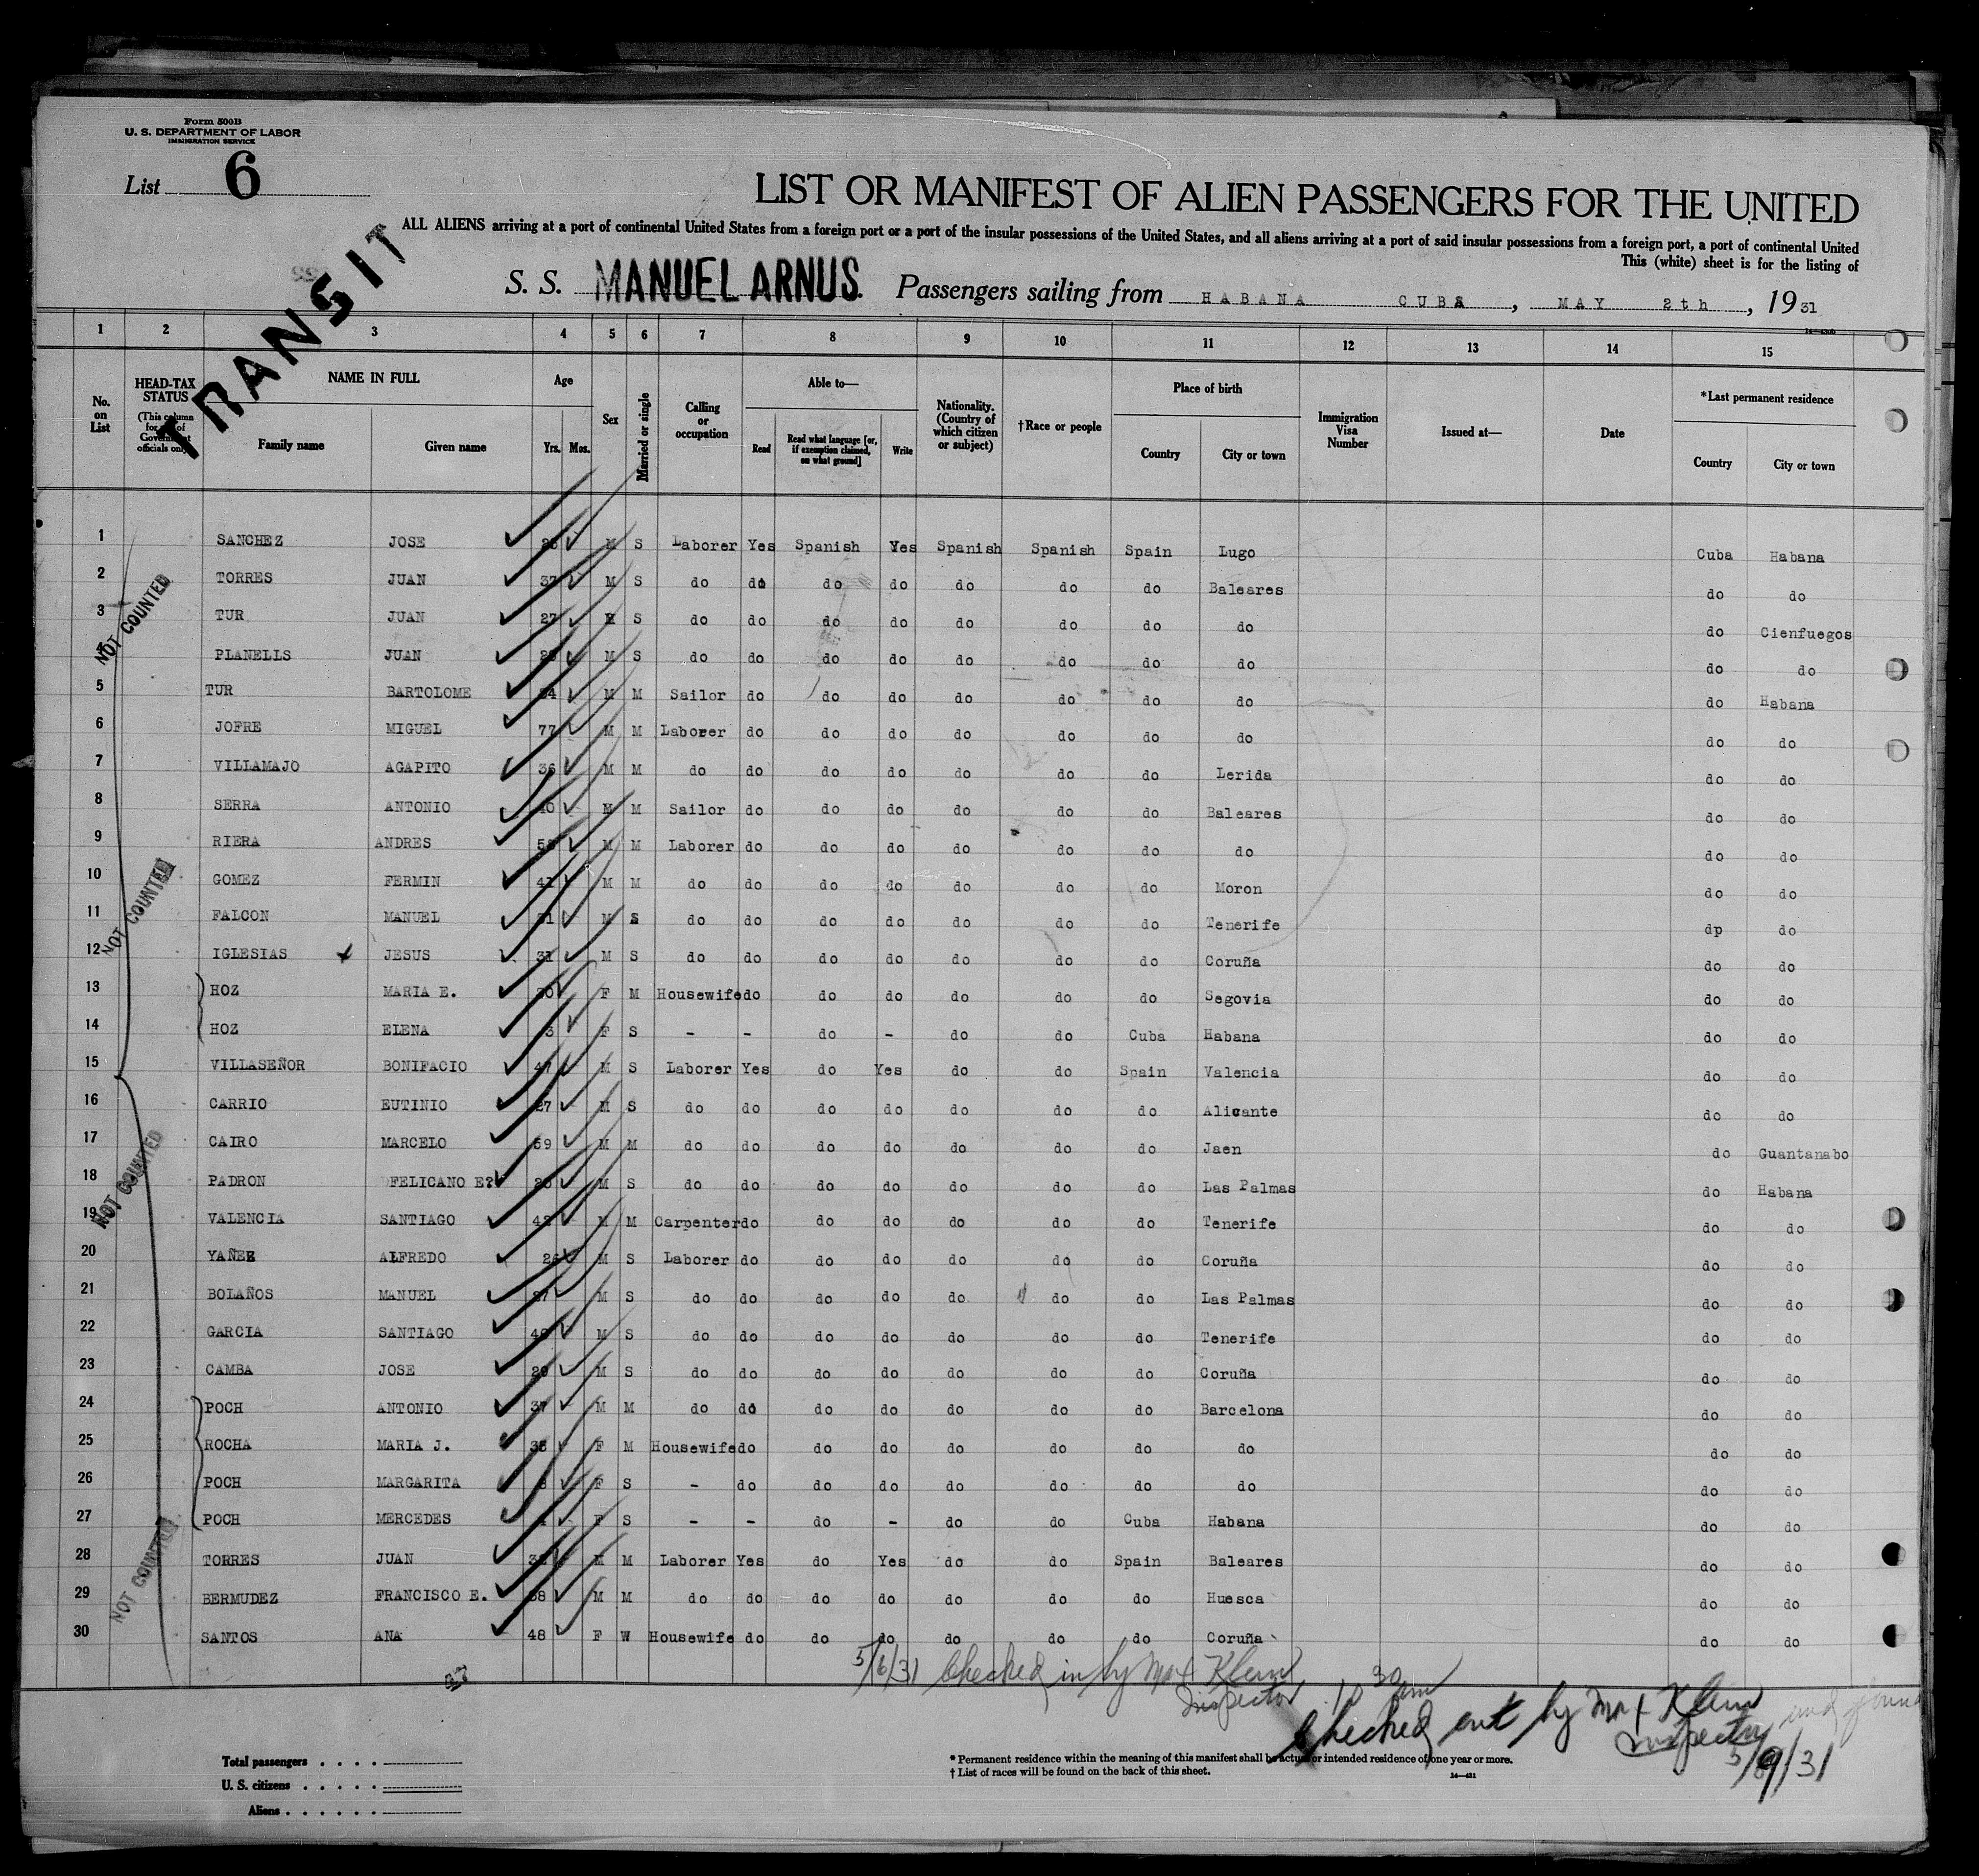 Form 500B
U. S. DEPARTMENT OF LABOR
IMMIGRATION SERVICE
List 6
TRANSIT
LIST OR MANIFEST OF ALIEN PASSENGERS FOR THE UNITED
ALL ALIENS arriving at a port of continental United States from a foreign port or a port of the insular possessions of the United States, and all aliens arriving at a port of said insular possessions from a foreign port, a port of continental United
This (white) sheet is for the listing of
S. S. MANUEL ARNUS. Passengers sailing from HABANA CUBA, MAY 2th, 1931
1 2 3 4 5 6 7 8 9 10 11 12 13 14 15
No. on List
HEAD-TAX STATUS
(This column for use of Government officials only)
NAME IN FULL
Family name Given name
Age
Yrs. Mos.
Sex
Married or single
Calling or occupation
Able to—
Read
Read what language [or, if exemption claimed, on what ground]
Write
Nationality. (Country of which citizen or subject)
†Race or people
Place of birth
Country City or town
Immigration Visa Number
Issued at—
Date
*Last permanent residence
Country City or town
1 SANCHEZ JOSE M S Laborer Yes Spanish Yes Spanish Spanish Spain Lugo Cuba Habana
2 TORRES JUAN 37 M S do do do do do do do Baleares do do
3 TUR JUAN 27 M S do do do do do do do do do Cienfuegos
4 PLANELLS JUAN M S do do do do do do do do do do
5 TUR BARTOLOME M M Sailor do do do do do do do do Habana
6 JOFRE MIGUEL 77 M M Laborer do do do do do do do do do
7 VILLAMAJO AGAPITO 36 M M do do do do do do do Lerida do do
8 SERRA ANTONIO 40 M M Sailor do do do do do do Baleares do do
9 RIERA ANDRES M M Laborer do do do do do do do do do
10 GOMEZ FERMIN 41 M M do do do do do do do Moron do do
11 FALCON MANUEL M S do do do do do do do Tenerife dp do
12 IGLESIAS JESUS 31 M S do do do do do do do Coruña do do
13 HOZ MARIA E. F M Housewife do do do do do do Segovia do do
14 HOZ ELENA 3 F S - - do - do do Cuba Habana do do
15 VILLASEÑOR BONIFACIO 47 M S Laborer Yes do Yes do do Spain Valencia do do
16 CARRIO EUTINIO 27 M S do do do do do do do Alicante do do
17 CAIRO MARCELO 59 M M do do do do do do do Jaen do Guantanabo
18 PADRON FELICANO E? M S do do do do do do do Las Palmas do Habana
19 VALENCIA SANTIAGO M M Carpenter do do do do do do Tenerife do do
20 YAÑEZ ALFREDO M S Laborer do do do do do do Coruña do do
21 BOLAÑOS MANUEL M S do do do do do do do Las Palmas do do
22 GARCIA SANTIAGO M S do do do do do do do Tenerife do do
23 CAMBA JOSE 29 M S do do do do do do do Coruña do do
24 POCH ANTONIO 37 M M do do do do do do do Barcelona do do
25 ROCHA MARIA J. F M Housewife do do do do do do do do do
26 POCH MARGARITA F S - do do do do do do do do do
27 POCH MERCEDES F S - - do - do do Cuba Habana do do
28 TORRES JUAN M M Laborer Yes do Yes do do Spain Baleares do do
29 BERMUDEZ FRANCISCO E. M M do do do do do do do Huesca do do
30 SANTOS ANA 48 F W Housewife do do do do do do Coruña do do
NOT COUNTED
NOT COUNTED
NOT COUNTED
NOT COUNTED
5/6/31 Checked in by Max Klein
Inspector 10 30 am
Checked out by Max Klein
Inspector
5/9/31
Total passengers
U. S. citizens
Aliens
* Permanent residence within the meaning of this manifest shall be actual or intended residence of one year or more.
† List of races will be found on the back of this sheet.